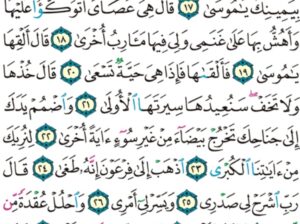 بِيَمِينِكَ يَٰمُوسَىٰ ١٧ قَالَ هِىَ عَصَاىَ أَتَوَكَّؤُا۟ عَلَيْهَا
وَأَهُشُّ بِهَا عَلَىٰ غَنَمِى وَلِىَ فِيهَا مَـَٔارِبُ أُخْرَىٰ ١٨ قَالَ أَلْقِهَا
يَٰمُوسَىٰ ١٩ فَأَلْقَىٰهَا فَإِذَا هِىَ حَيَّةٌ تَسْعَىٰ ٢٠ قَالَ خُذْهَا
وَلَا تَخَفْ سَنُعِيدُهَا سِيرَتَهَا ٱلْأُولَىٰ ٢١ وَٱضْمُمْ يَدَكَ
إِلَىٰ جَنَاحِكَ تَخْرُجْ بَيْضَآءَ مِنْ غَيْرِ سُوٓءٍ ءَايَةً أُخْرَىٰ ٢٢ لِنُرِيَكَ
مِنْ ءَايَٰتِنَا ٱلْكُبْرَى ٢٣ ٱذْهَبْ إِلَىٰ فِرْعَوْنَ إِنَّهُۥ طَغَىٰ ٢٤ قَالَ
رَبِّ ٱشْرَحْ لِى صَدْرِى ٢٥ وَيَسِّرْ لِىٓ أَمْرِى ٢٦ وَٱحْلُلْ عُقْدَةً مِّن